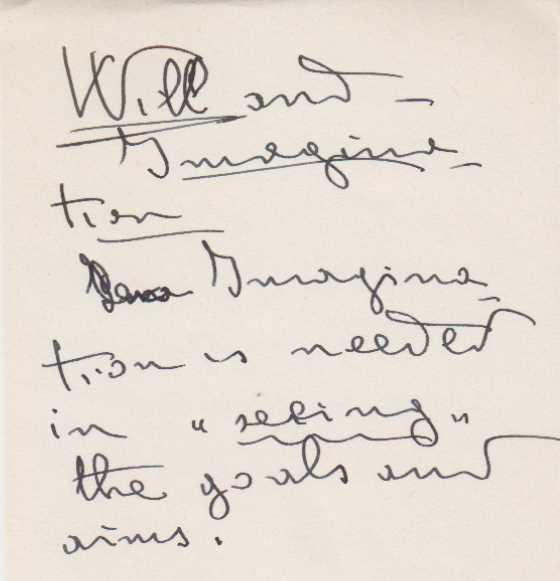 Will and –
Imagina-
tion
Imagina-
tion is needed
in "seeing"
the goals and
aims.